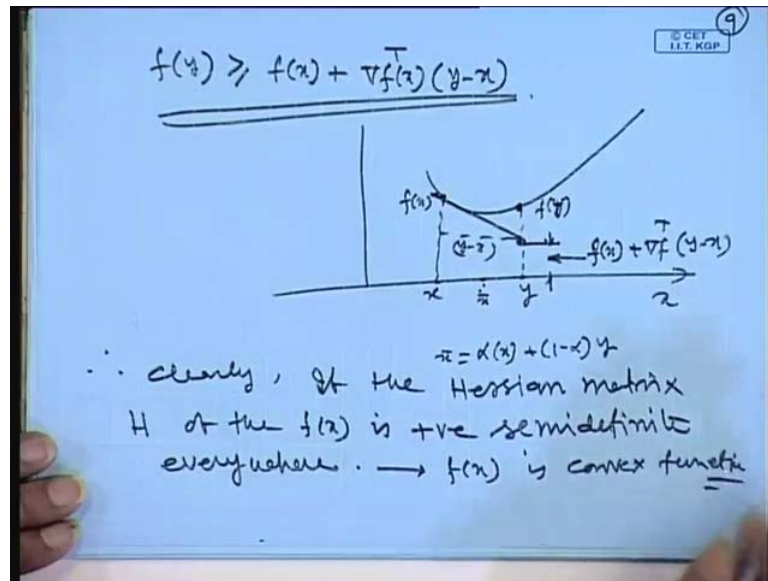 9
© CET
I.I.T. KGP
f(y) ≥ f(x) + ∇f(x)ᵀ (y-x)
f(x)
f(y)
(ȳ-x̄)
f(x) + ∇fᵀ (y-x)
x
x̄
y
x
x̄ = α(x) + (1-α) y
∴ clearly, If the Hessian matrix
H of the f(x) is +ve semidefinite
everywhere. → f(x) is convex function